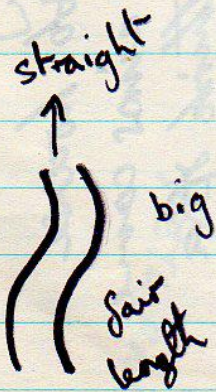 straight
big
fair
length